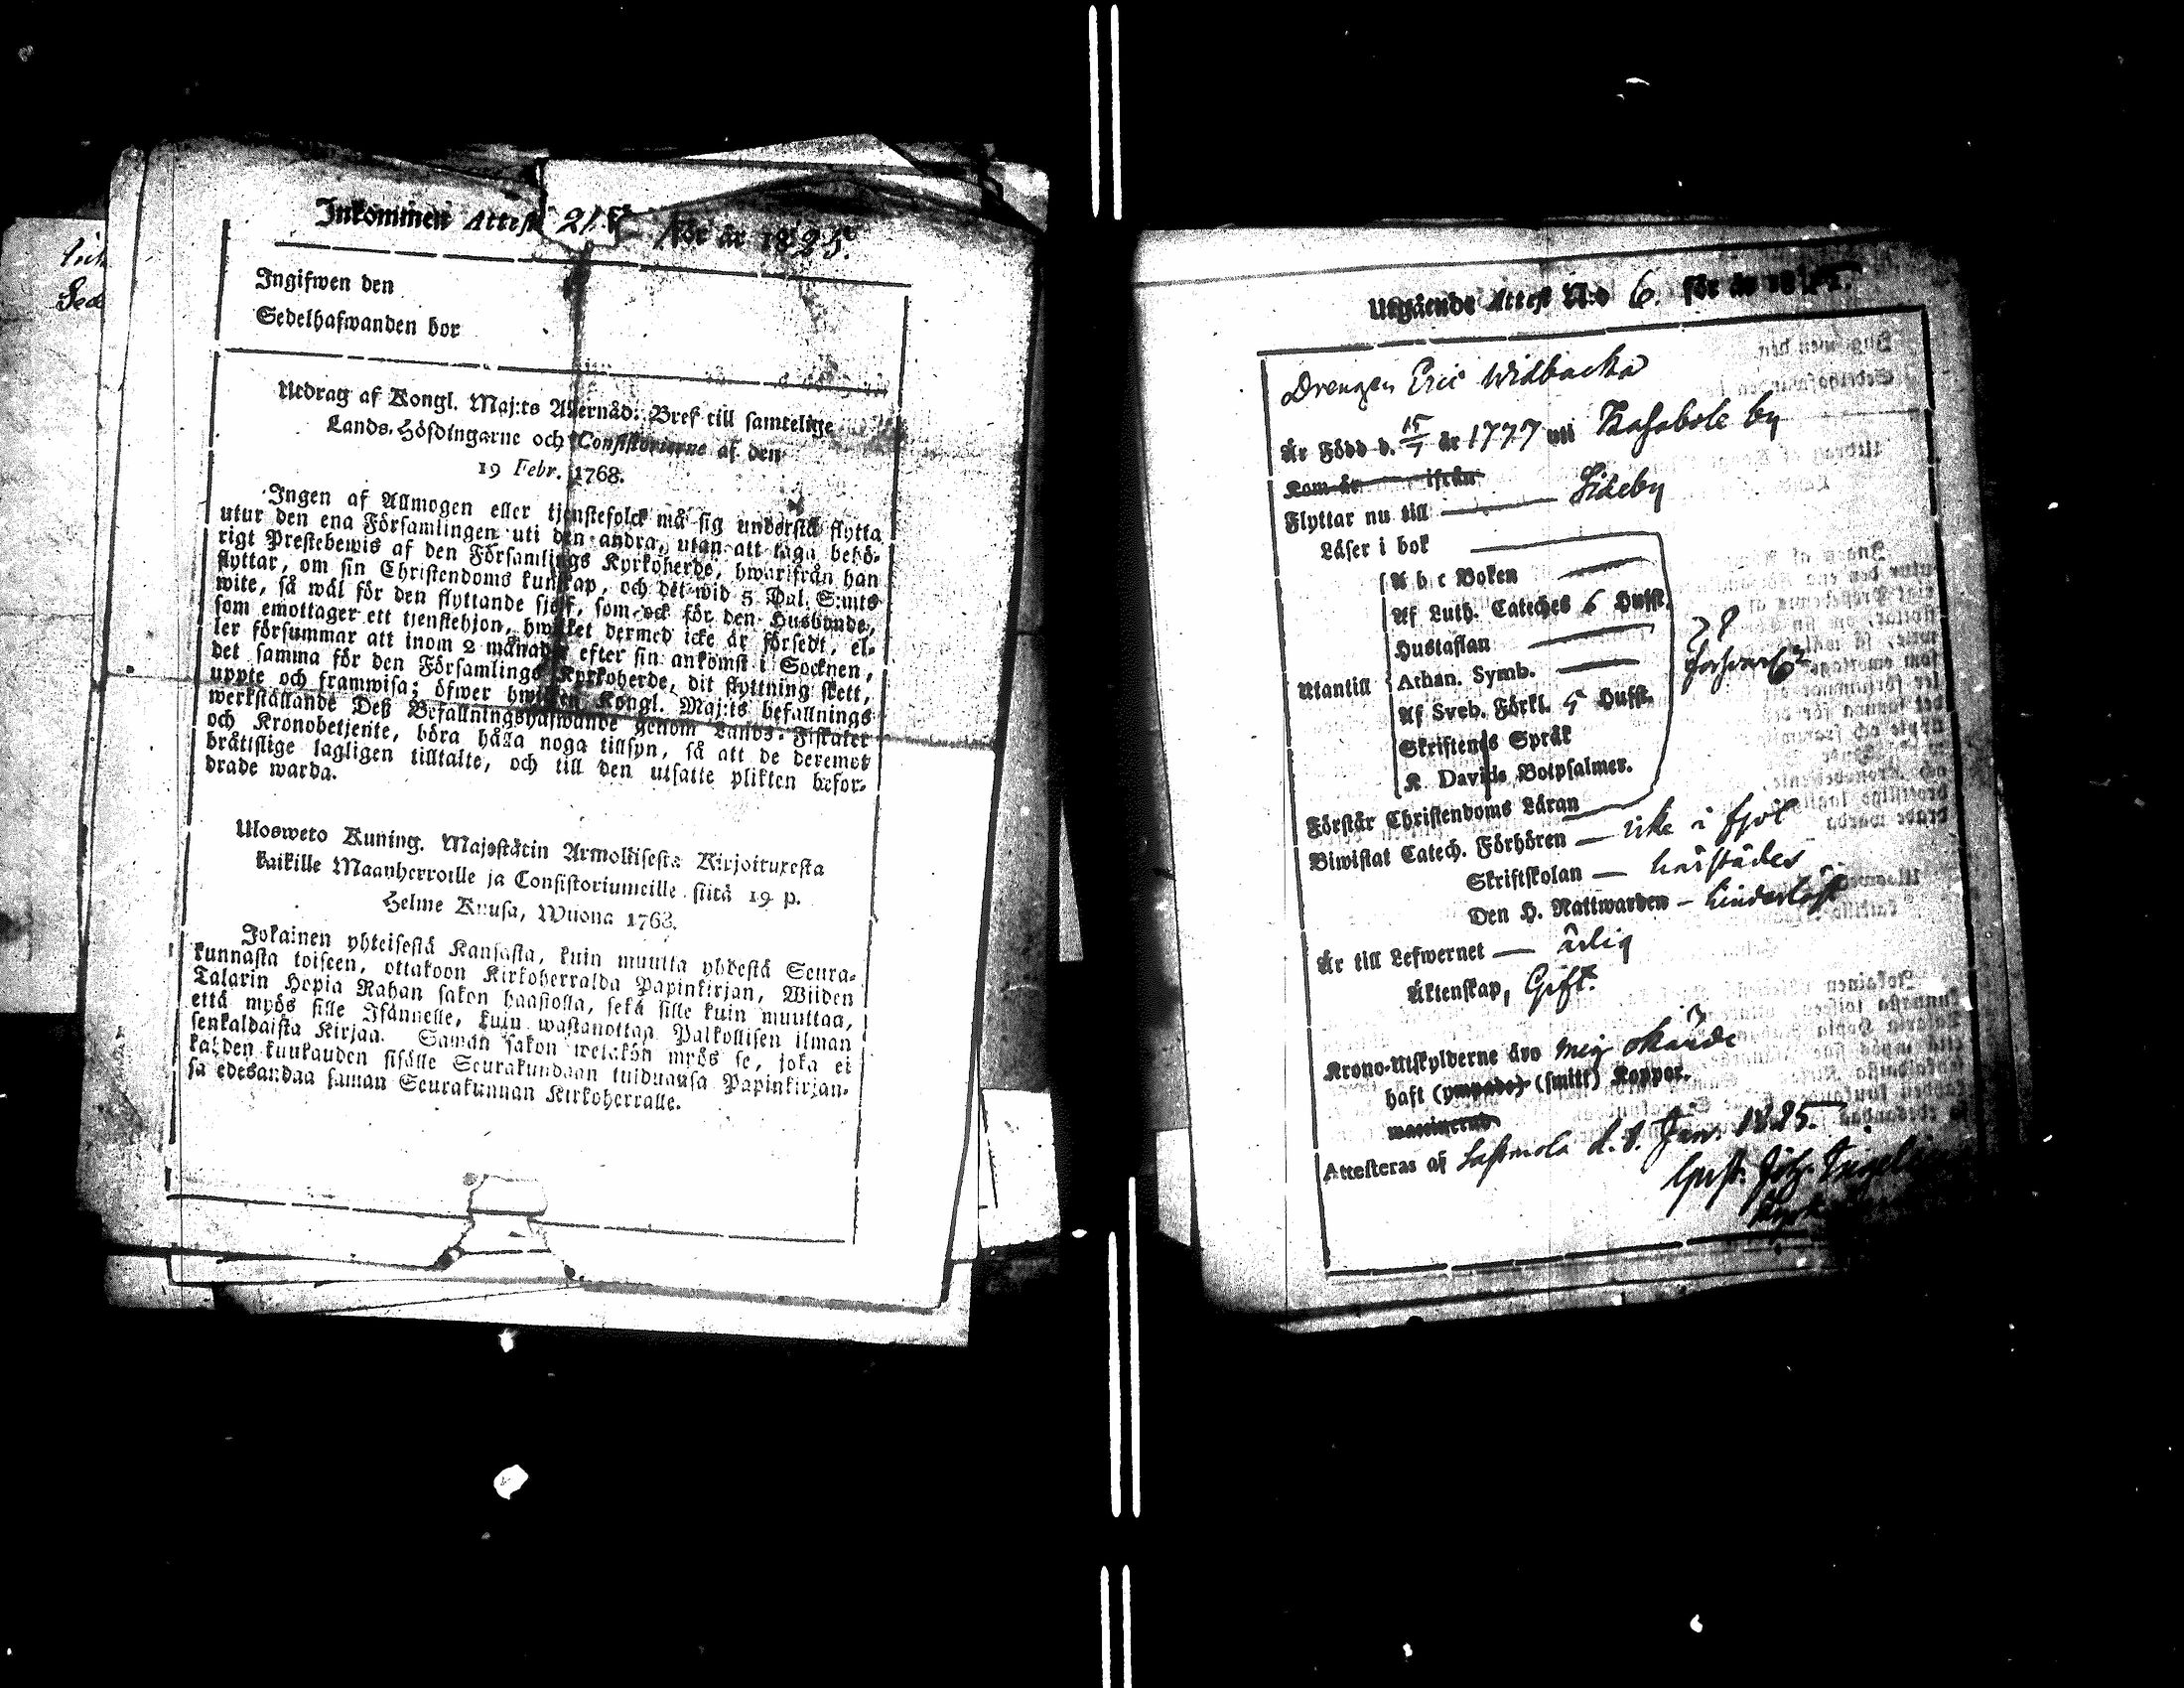 Inkommen Attest 21. för år 1825.
Ingifwen den
Sedelhafwanden bor
Utdrag af Kongl. Maj:ts Allernåd: Bref till samtelige
Lands-Höfdingarne och Consistorierne af den
19 Febr. 1768.
Ingen af Allmogen eller tjenstefolck må sig understå flytta
utur den ena Församlingen uti den andra, utan att taga behö-
rigt Prestebewis af den Församlings Kyrkoherde, hwarifrån han
flyttar, om sin Christendoms kunskap, och det wid 5 Dal. S:mts
wite, så wäl för den flyttande sjelf, som ock för den Husbonde,
som emottager ett tjenstehjon, hwilket dermed icke är försedt, el-
ler försummar att inom 2 månader efter sin ankomst i Socknen,
det samma för den Församlings Kyrkoherde, dit flyttning skett,
uppte och framwisa; öfwer hwilken Kongl. Maj:ts befallnings
werkställande Deß Befallningshafwande genom Lands-Fiskaler
och Kronobetjente, böra hålla noga tillsyn, så att de deremot
bråttslige lagligen tilltalte, och till den utsatte plikten befor-
drade warda.
Ulosweto Kuning. Majestätin Armollisesta Kirjoituxesta
kaikille Maanherroille ja Consistoriumeille siitä 19 p.
Helme Kuusa, Wuona 1768.
Jokainen yhteisestä Kansasta, kuin muutta yhdestä Seura-
kunnasta toiseen, ottakoon Kirkoherralda Papinkirjan, Wiiden
Talarin Hopia Rahan sakon haastolla, sekä sille kuin muuttaa,
että myös sille Isännelle, kuin wastanottaa Palkollisen ilman
senkaldaista Kirjaa. Saman sakon wetäkön myös se, joka ei
kahden kuukauden sisälle Seurakundaan tulduansa Papinkirjan-
sa edesandaa saman Seurakunnan Kirkoherralle.
Utgående Attest N:o 6. för år 18
Drengen Eric Widbacka
Är Född d. 15/7 år 1777 uti Kasabole by
Kom år ifrån
Flyttar nu till Sideby
Läser i bok
Utantill
A b c Boken
Af Luth. Cateches 6 Hufst.
Hustaflan
Athan. Symb.
Af Sveb. Förkl. 5 Hufst.
Skriftenes Språk
K Davids Botpsalmer.
Förstår Christendoms Läran
Biwistat Catech. Förhören — icke i fjol
Skriftskolan — härstädes
Den H. Nattwarden — hinderlöst
Är till Lefwernet — ärlig
Äktenskap, Gift.
Krono-Utskylderne äro mig okände
haft (ympade) (smitt) Koppor.
waccinerad
Attesteras af Lappmola d. 8. Jan. 1825.